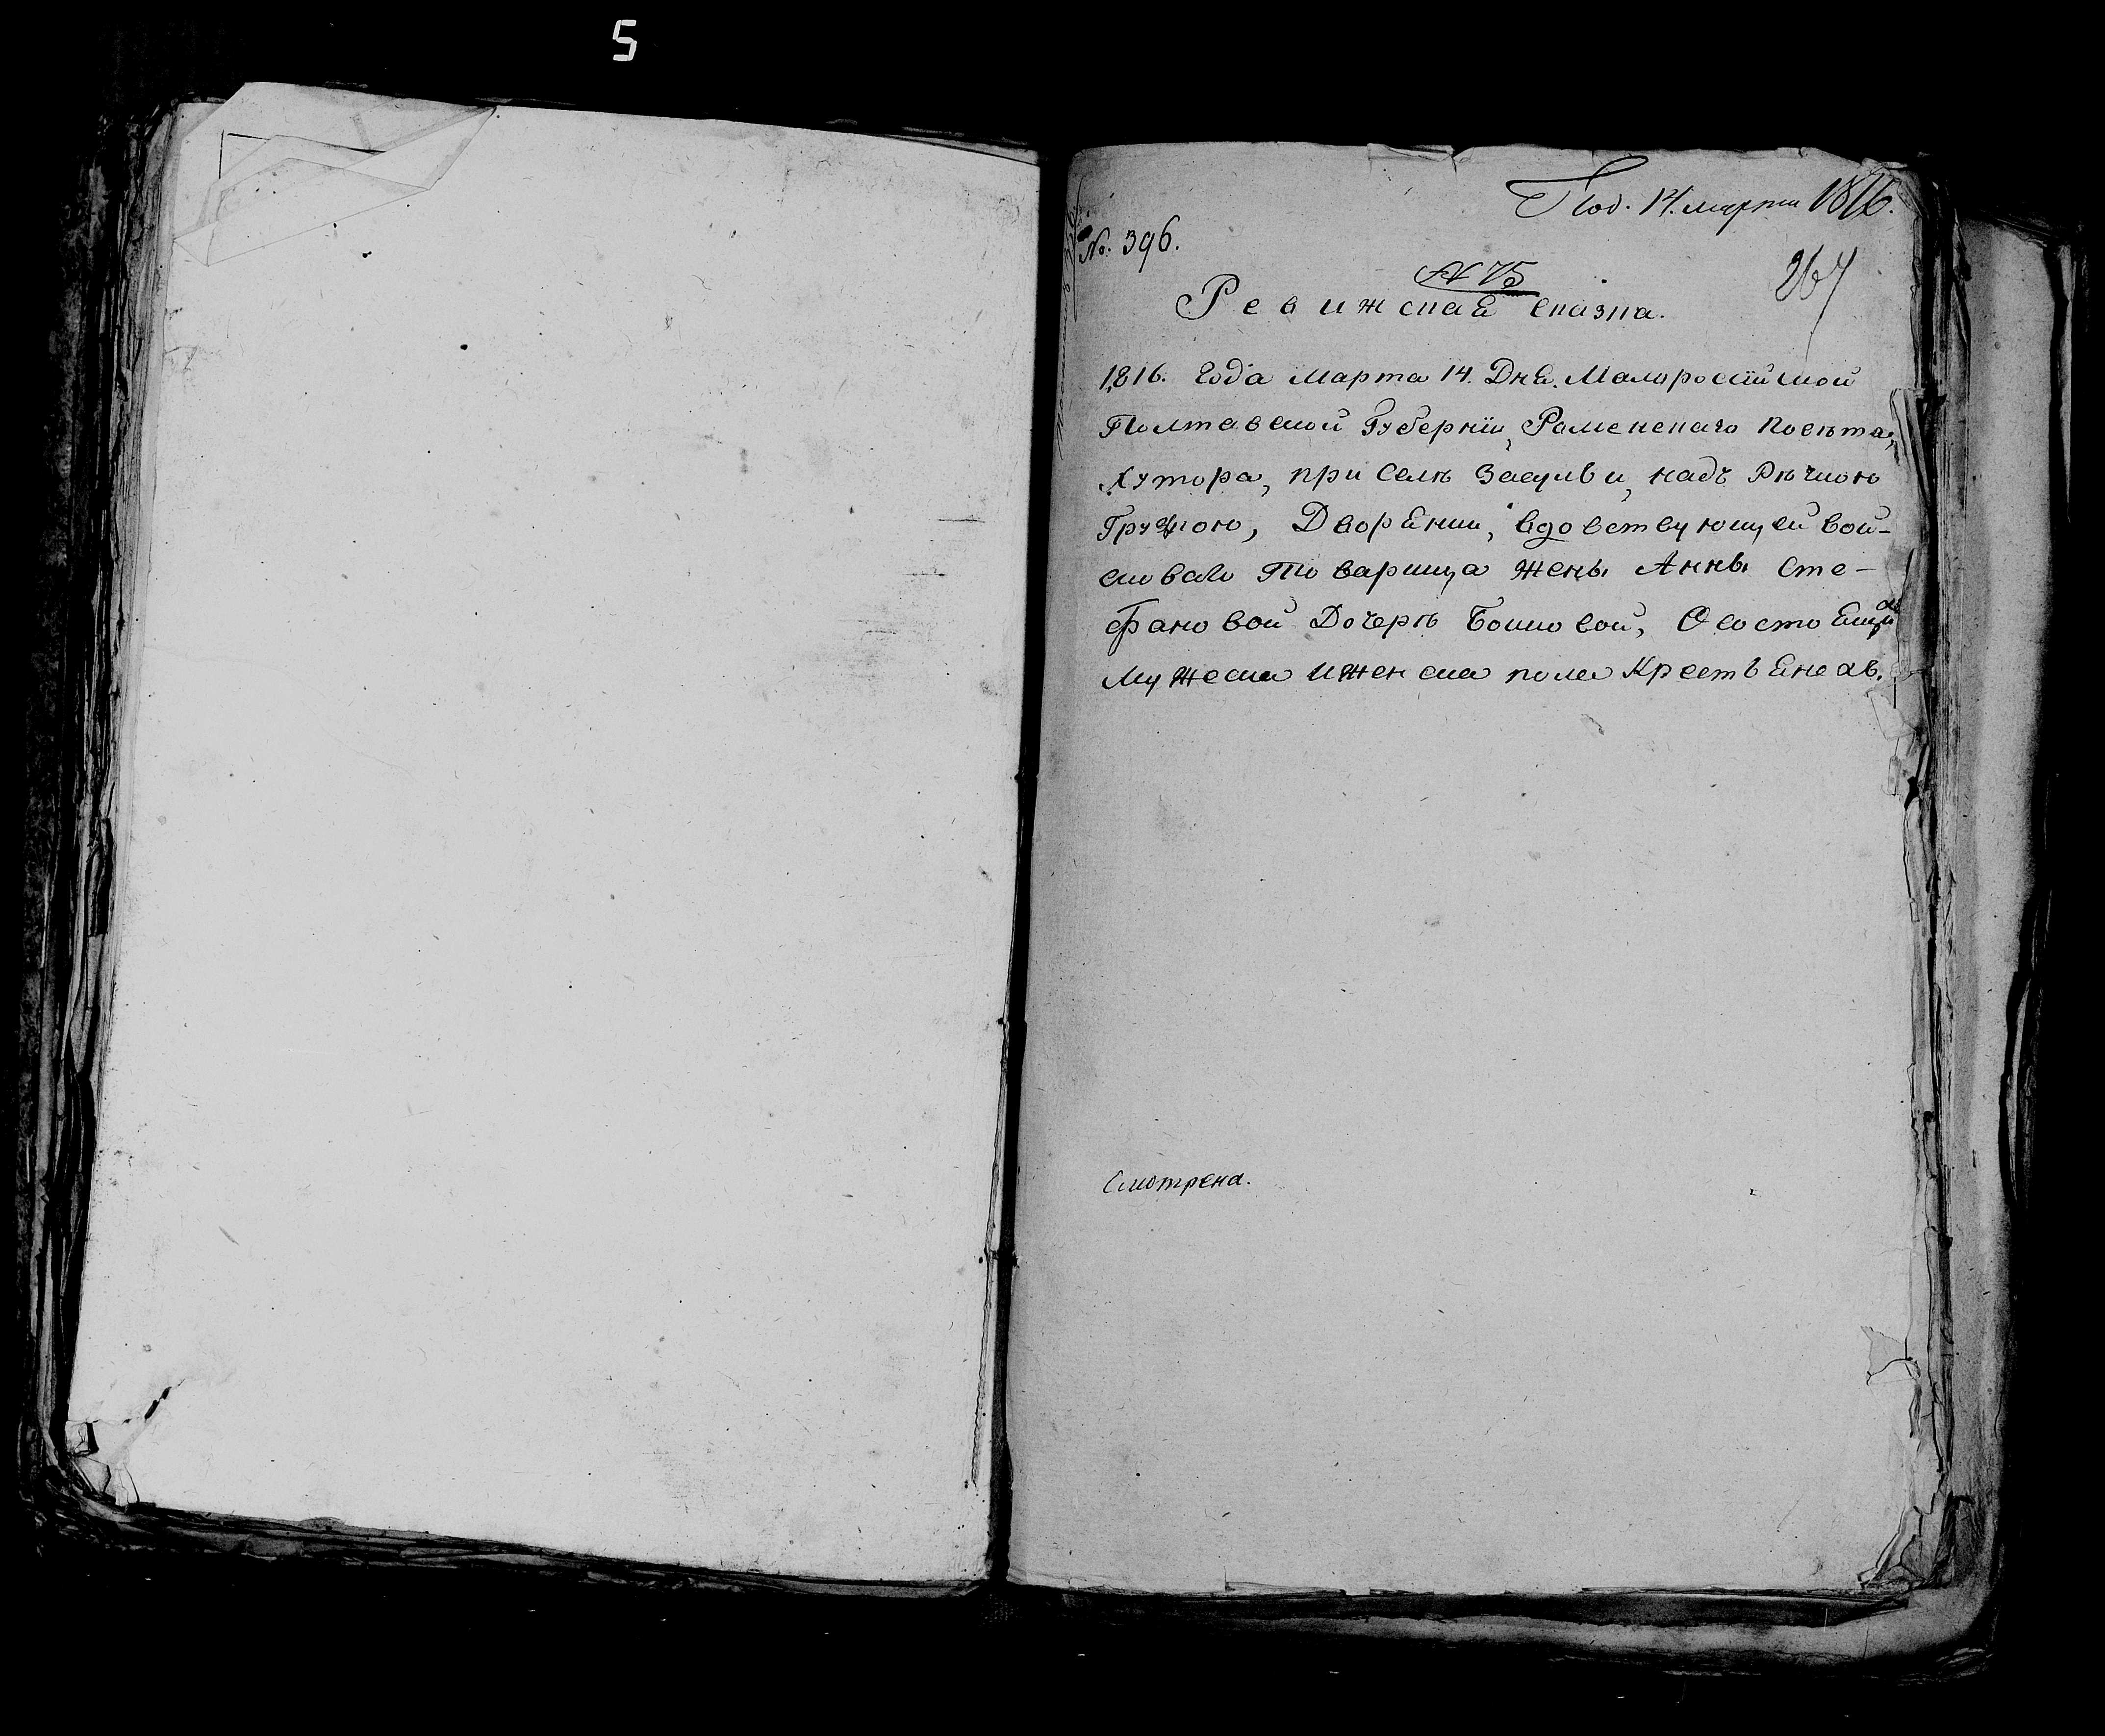 5
Под. 14. марта 1816.
№. 396.
№ 75
267
Ревижская сказка.
1816. года марта 14. дня. Малороссійской
Полтавской Губерніи, Роменскаго повѣта,
хутора, при селѣ Засульи, надъ рѣчкою
Грузкою, Дворянки, вдовствующей вой-
сковаго товарища жены Анны Сте-
фановой дочерѣ Бошковой, О состоящихъ
мужеска и женска пола крестьянехъ.
Смотрена.